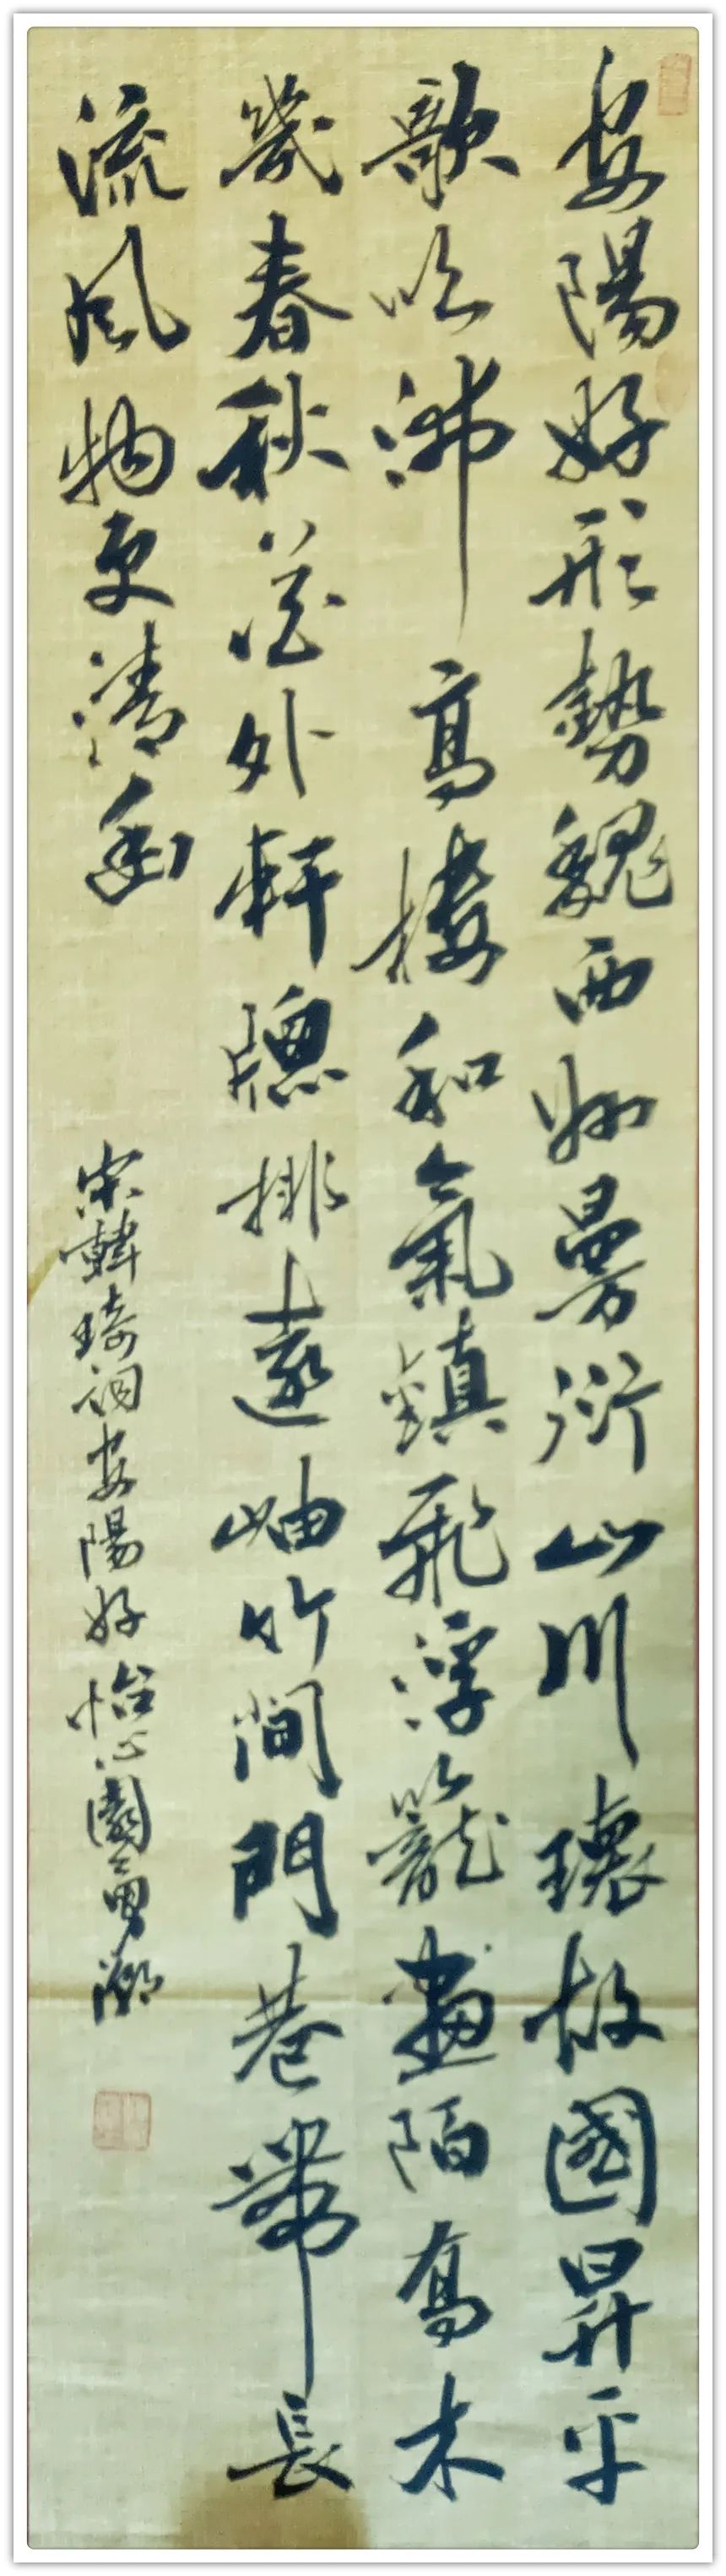 安陽好形勢魏西州曼衍山川環故國昇平
歌吹沸高樓和氣鎮飛浮籠畫陌喬木
幾春秋花外軒窻排遠岫竹間門巷帶長
流風物更清幽
宋韓琦詞安陽好怡心園勇